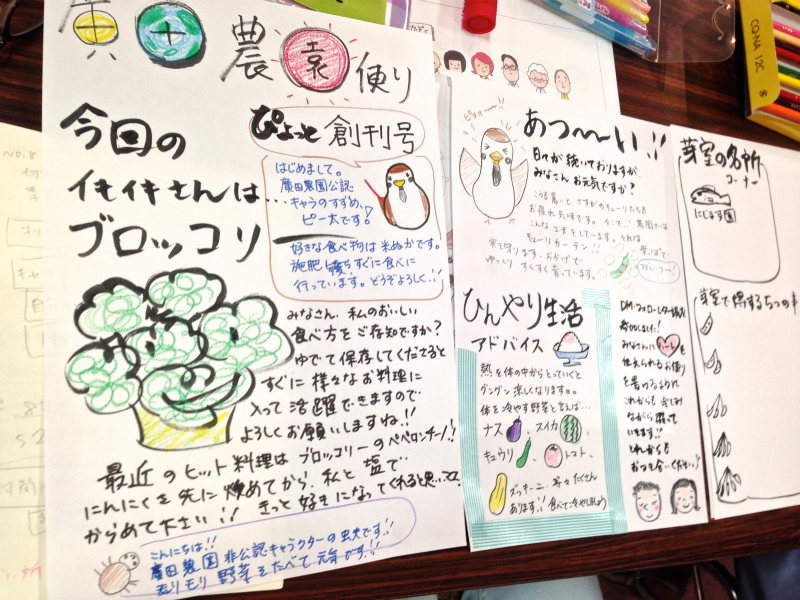 廣田農園便り
ぴよっと創刊号
今回の
イキイキさんは…
ブロッコリー
はじめまして。
廣田農園公認
キャラのすずめ、
ピー太です!
好きな食べ物は米ぬかです。
施肥後すぐに食べに
行っています。どうぞよろしく!!
みなさん、私のおいしい
食べ方をご存知ですか?
ゆでて保存してくださると
すぐに様々なお料理に
入って活躍できますので
よろしくお願いしますね!!
最近のヒット料理はブロッコリーのペペロンチーノ!!
にんにくを先に炒めてから、私と塩で
からめて下さい!!きっと好きになってくれると思います。
こんにちは!!
廣田農園非公認キャラクターの虫夫です!!
モリモリ野菜をたべて元気です!!
あつ〜〜い!!
日々が続いておりますが、
みなさんお元気ですか?
ゆっくりすくすく育っています。
ひんやり生活
アドバイス
熱を体の中からとっていくと
グングン涼しくなります。
体を冷やす野菜と言えば…
ナス、スイカ、
キュウリ、トマト、
ズッキーニ、等々たくさん
あります!!食べて冷やしましょう
みなさんにハートを
伝えられるお便り
これからも
おつき合いください!!
芽室の名所
コーナー
にじます園
芽室で得する5つの事
CQ-NA 12C
NO.8